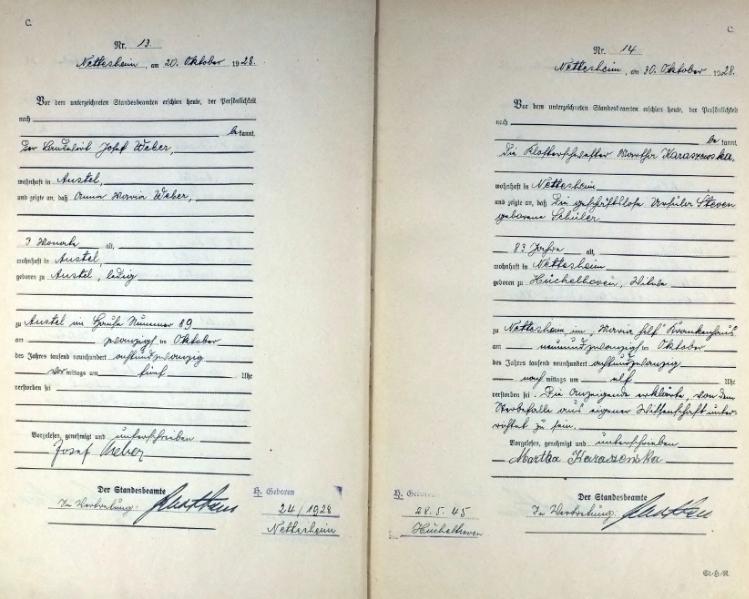 C.
Nr. 13.
Nettesheim, am 20. Oktober 1928.
Vor dem unterzeichneten Standesbeamten erschien heute, der Persönlichkeit
nach
bekannt,
der Landwirt Josef Weber,
wohnhaft in Anstel,
und zeigte an, daß Anna Maria Weber,
3 Monate alt,
wohnhaft in Anstel,
geboren zu Anstel, ledig
zu Anstel im Hause Nummer 89
am zwanzigsten Oktober
des Jahres tausend neunhundert achtundzwanzig
vormittags um fünf Uhr
verstorben sei
Vorgelesen, genehmigt und unterschrieben
Josef Weber
Der Standesbeamte
In Vertretung:
H. Geboren
24/1928
Nettesheim
C.
Nr. 14
Nettesheim, am 30. Oktober 1928.
Vor dem unterzeichneten Standesbeamten erschien heute, der Persönlichkeit
nach
bekannt,
die Klosterschwester Martha Karaszewska,
wohnhaft in Nettesheim
und zeigte an, daß die geschäftslose Ursula Steven
geborene Schüler
83 Jahre alt,
wohnhaft in Nettesheim
geboren zu Hüchelhoven, Witwe
zu Nettesheim im "Maria hilf" Krankenhaus
am neunundzwanzigsten Oktober
des Jahres tausend neunhundert achtundzwanzig
nachmittags um elf Uhr
verstorben sei. Die Anzeigende erklärte, von dem
Sterbefalle aus eigener Wissenschaft unter-
richtet zu sein.
Vorgelesen, genehmigt und unterschrieben
Martha Karaszewska
Der Standesbeamte
In Vertretung:
H. Geboren
28.5.45
Hüchelhoven